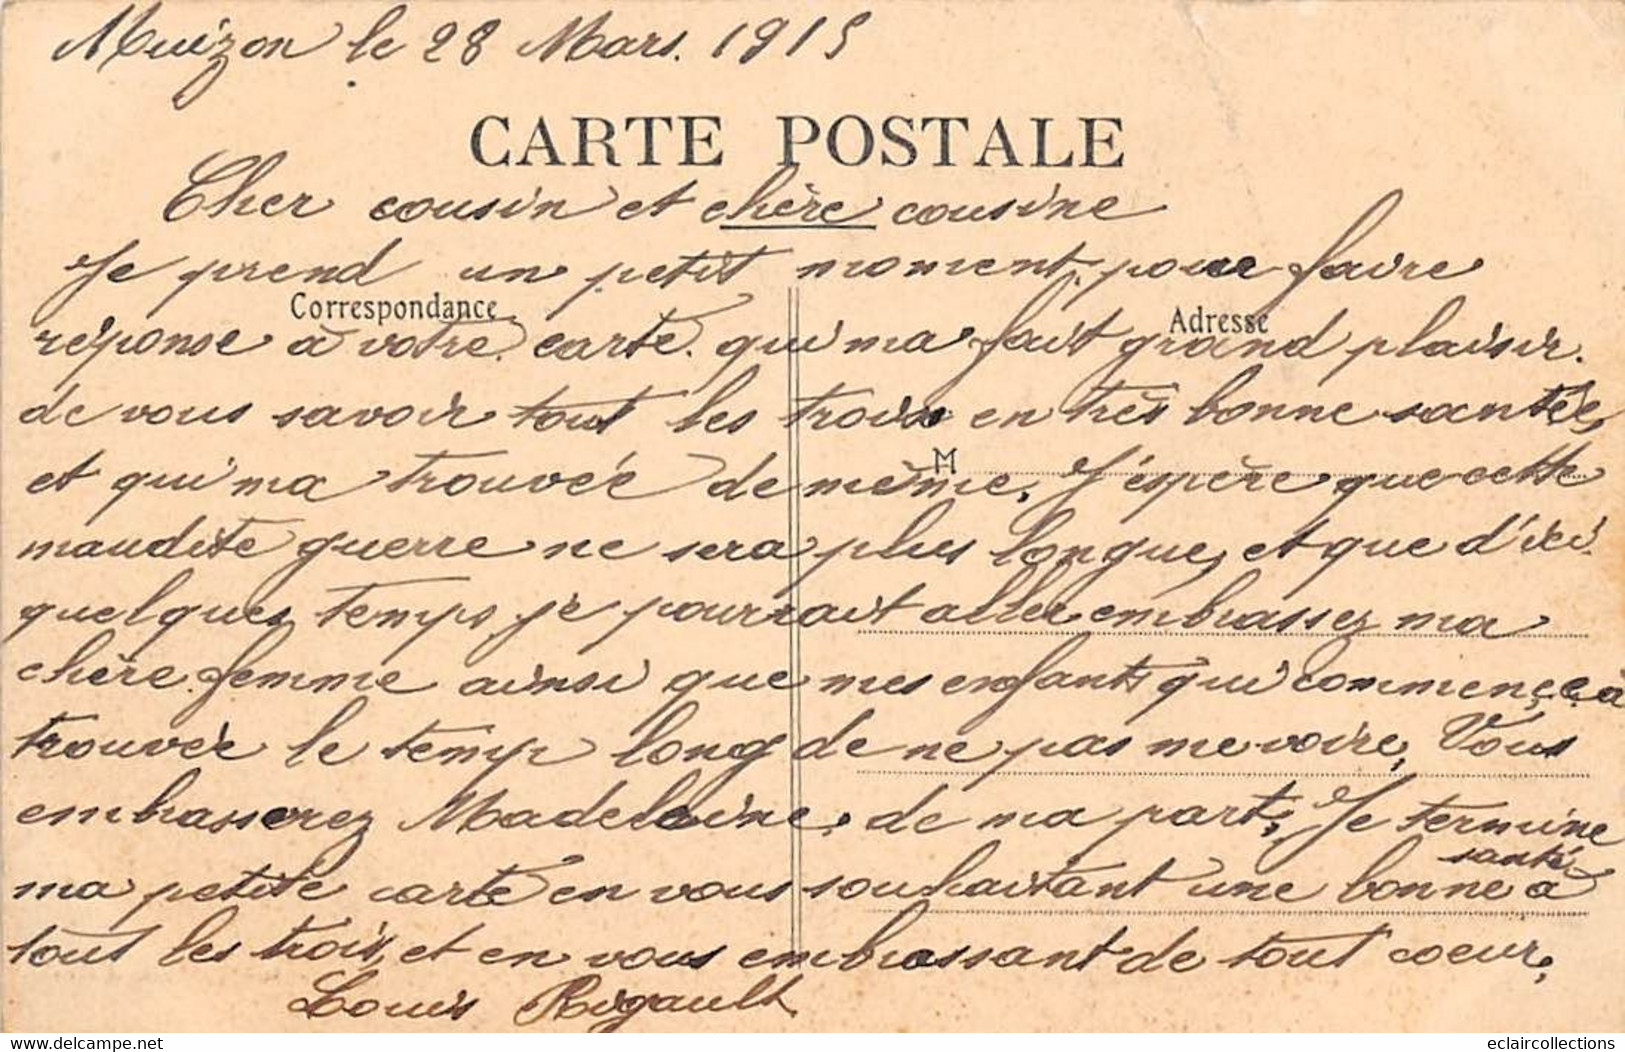 Muizon le 28 Mars. 1915
CARTE POSTALE
Cher cousin et chère cousine
Je prend un petit moment, pour faire
Correspondance
Adresse
réponse a votre carte. qui ma fait grand plaisir.
de vous savoir tout les trois en très bonne santée,
M
et qui ma trouvée de même. J'éspère que cette
maudite guerre ne sera plus longue, et que d'ici
quelques temps, je pourrait aller embrassez ma
chère femme ainsi que mes enfants qui commence à
trouver le temp long de ne pas me voire, Vous
embrasserez Madeleine, de ma part, Je termine
santé
ma petite carte en vous souhaitant une bonne a
tout les trois, et en vous embrassant de tout coeur,
Louis Rigault
www.delcampe.net
eclaircollections